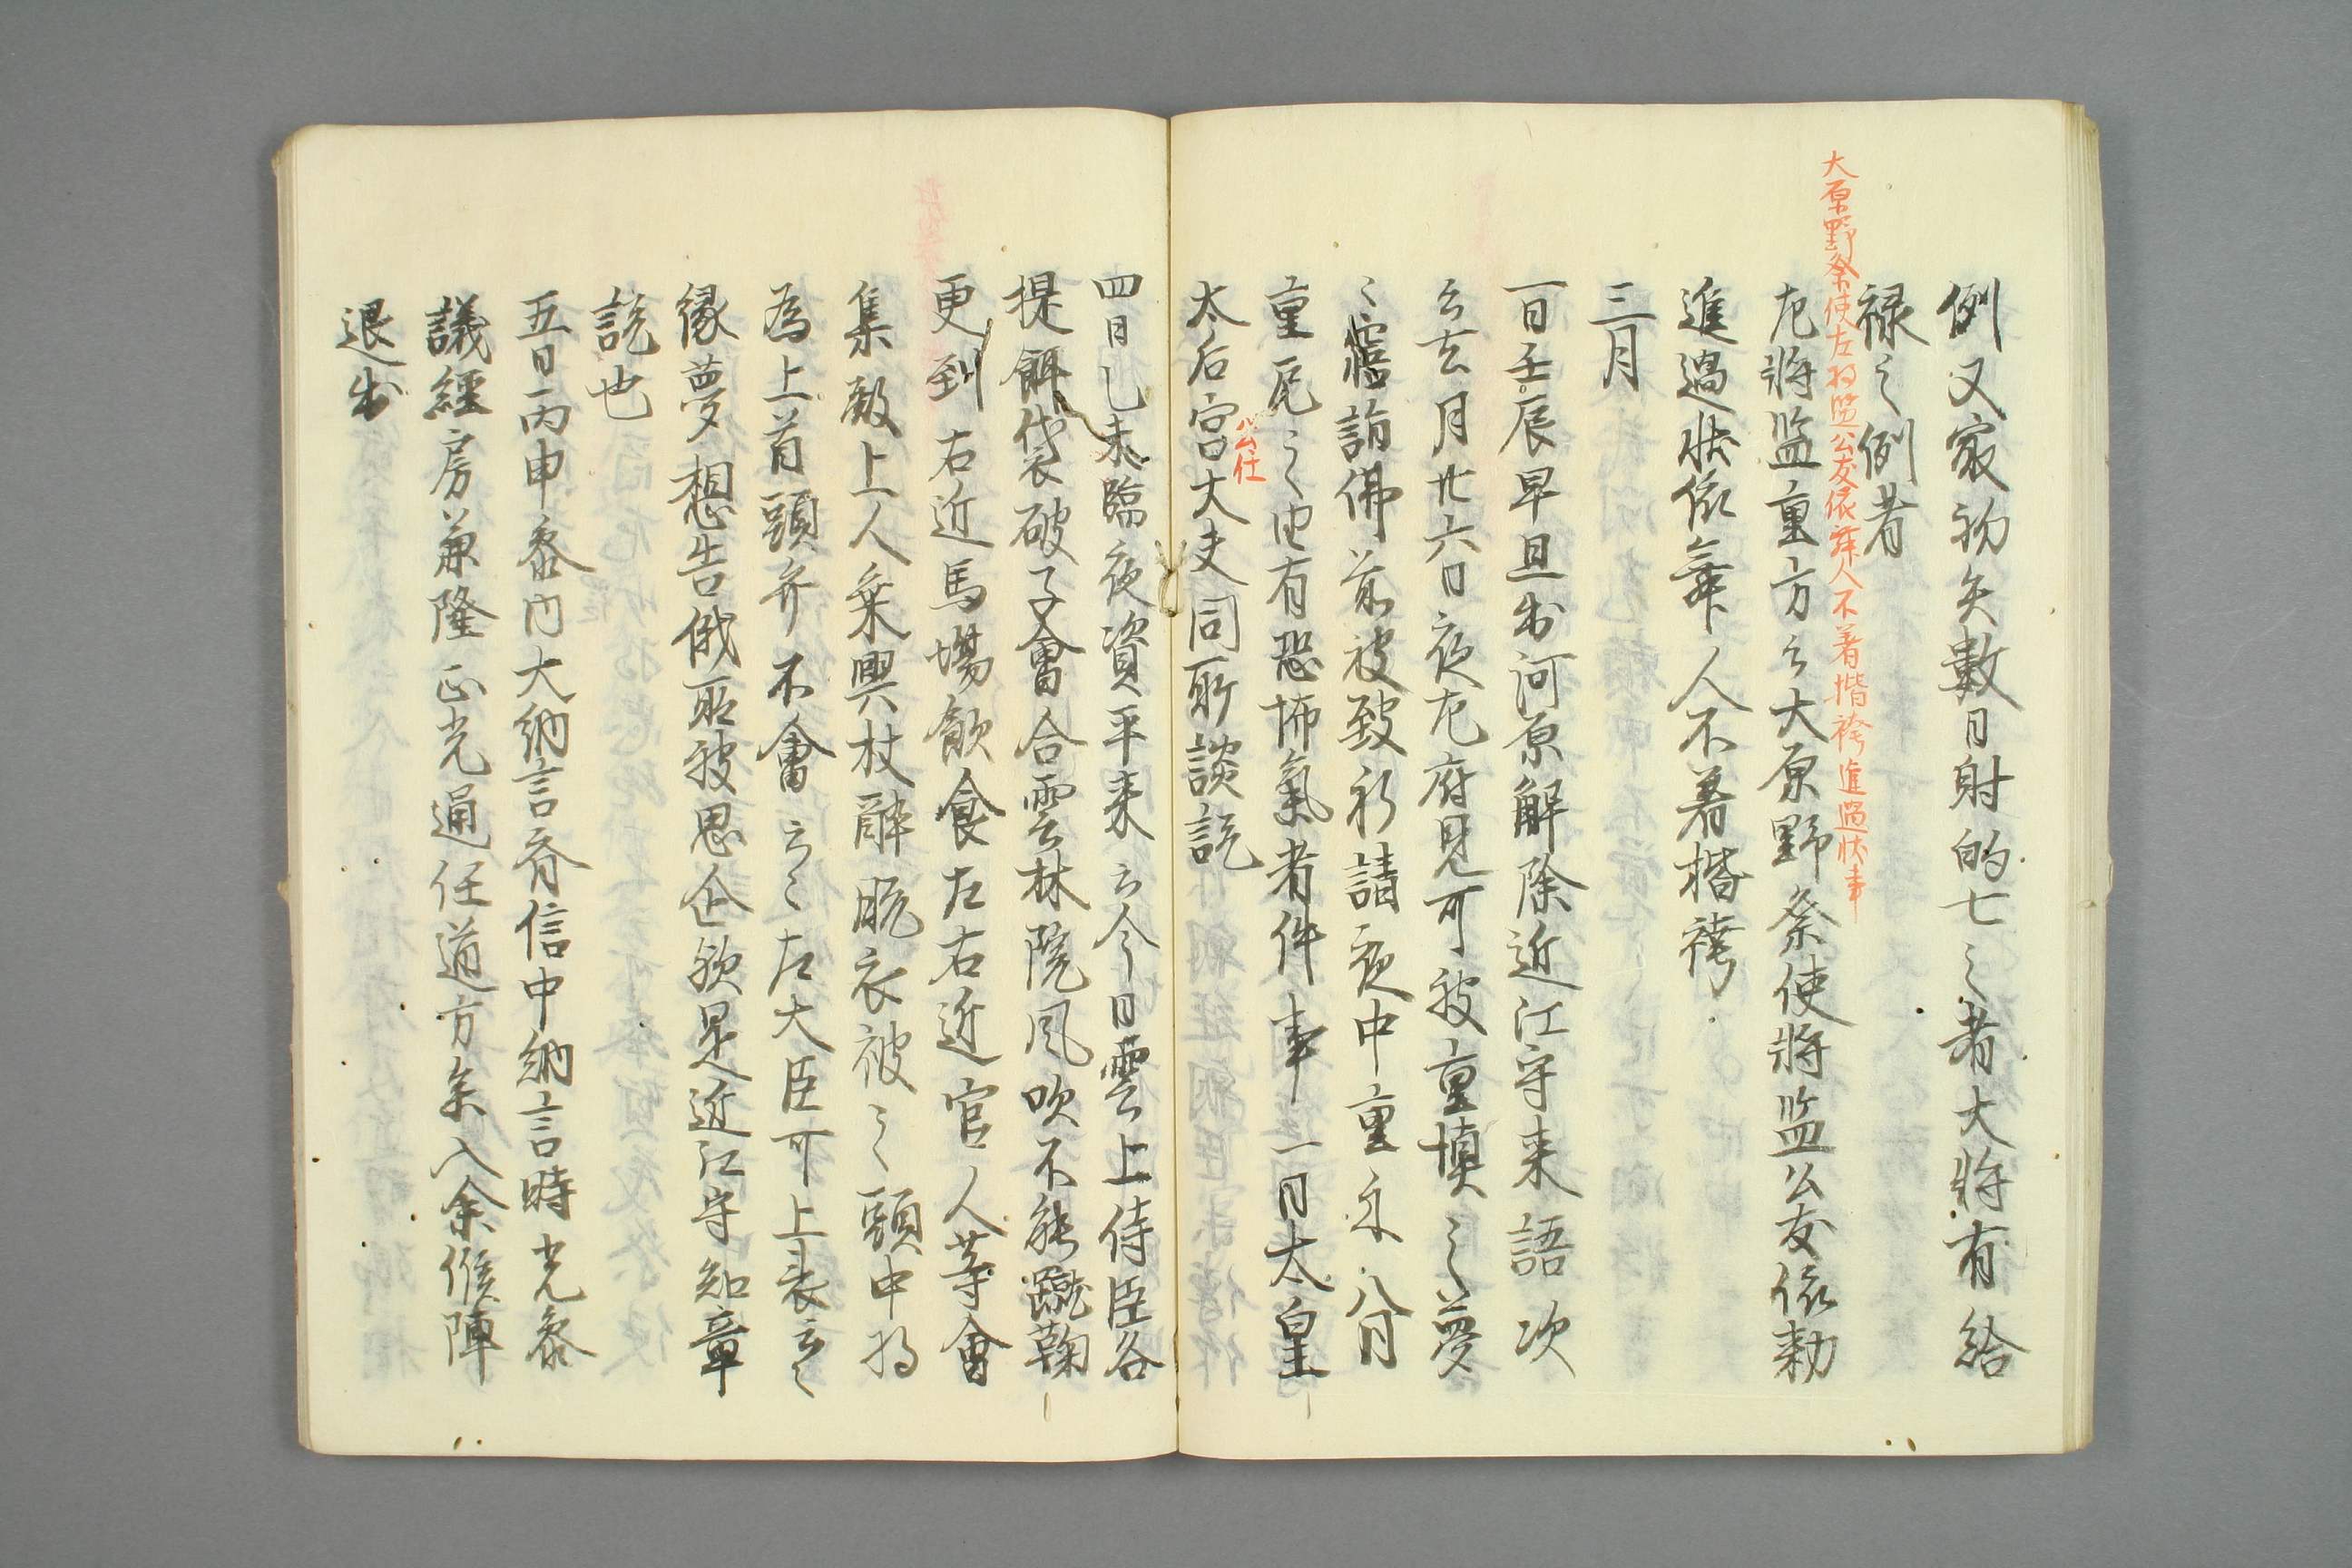 例又家物矢數日射的七之者大將有給
禄之例者
大原野祭使左将監公友依舞人不着揩袴進過状事
左將监重方云大原野祭使將监公友依勅
進過状依舞人不着楷袴
三月
一日壬辰早旦出河原解除近江守来語次
云去月廿六日夜左府見可被重慎之夢
〻寤詣佛前被致祈請夜中重
重 之由有恐怖氣者件事一日太皇
公任
太后宮大夫同所談説
四日乙未臨夜資平来云今日雲上侍臣各
提餌袋破子會合雲林院風吹不能蹴鞠
更到右近馬場飲食左右近官人等會
集殿上人乗興杖醉脱衣被之頭中将
為上首頭弁不會云〻左大臣可上表云〻
縁夢想告俄所被思企欤是近江守知章
説也
五日丙申参内大納言齊信中納言時光参
議經房兼隆正光通任道方余入余候陣
退出